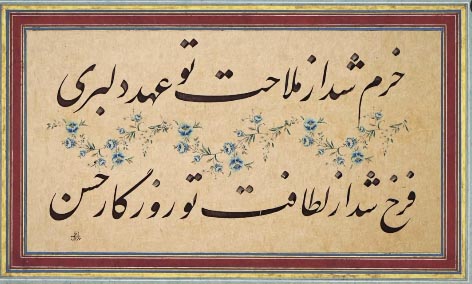 خرم شد از ملاحت تو عهد دلبری
فرخ شد از لطافت تو روزگار حسن